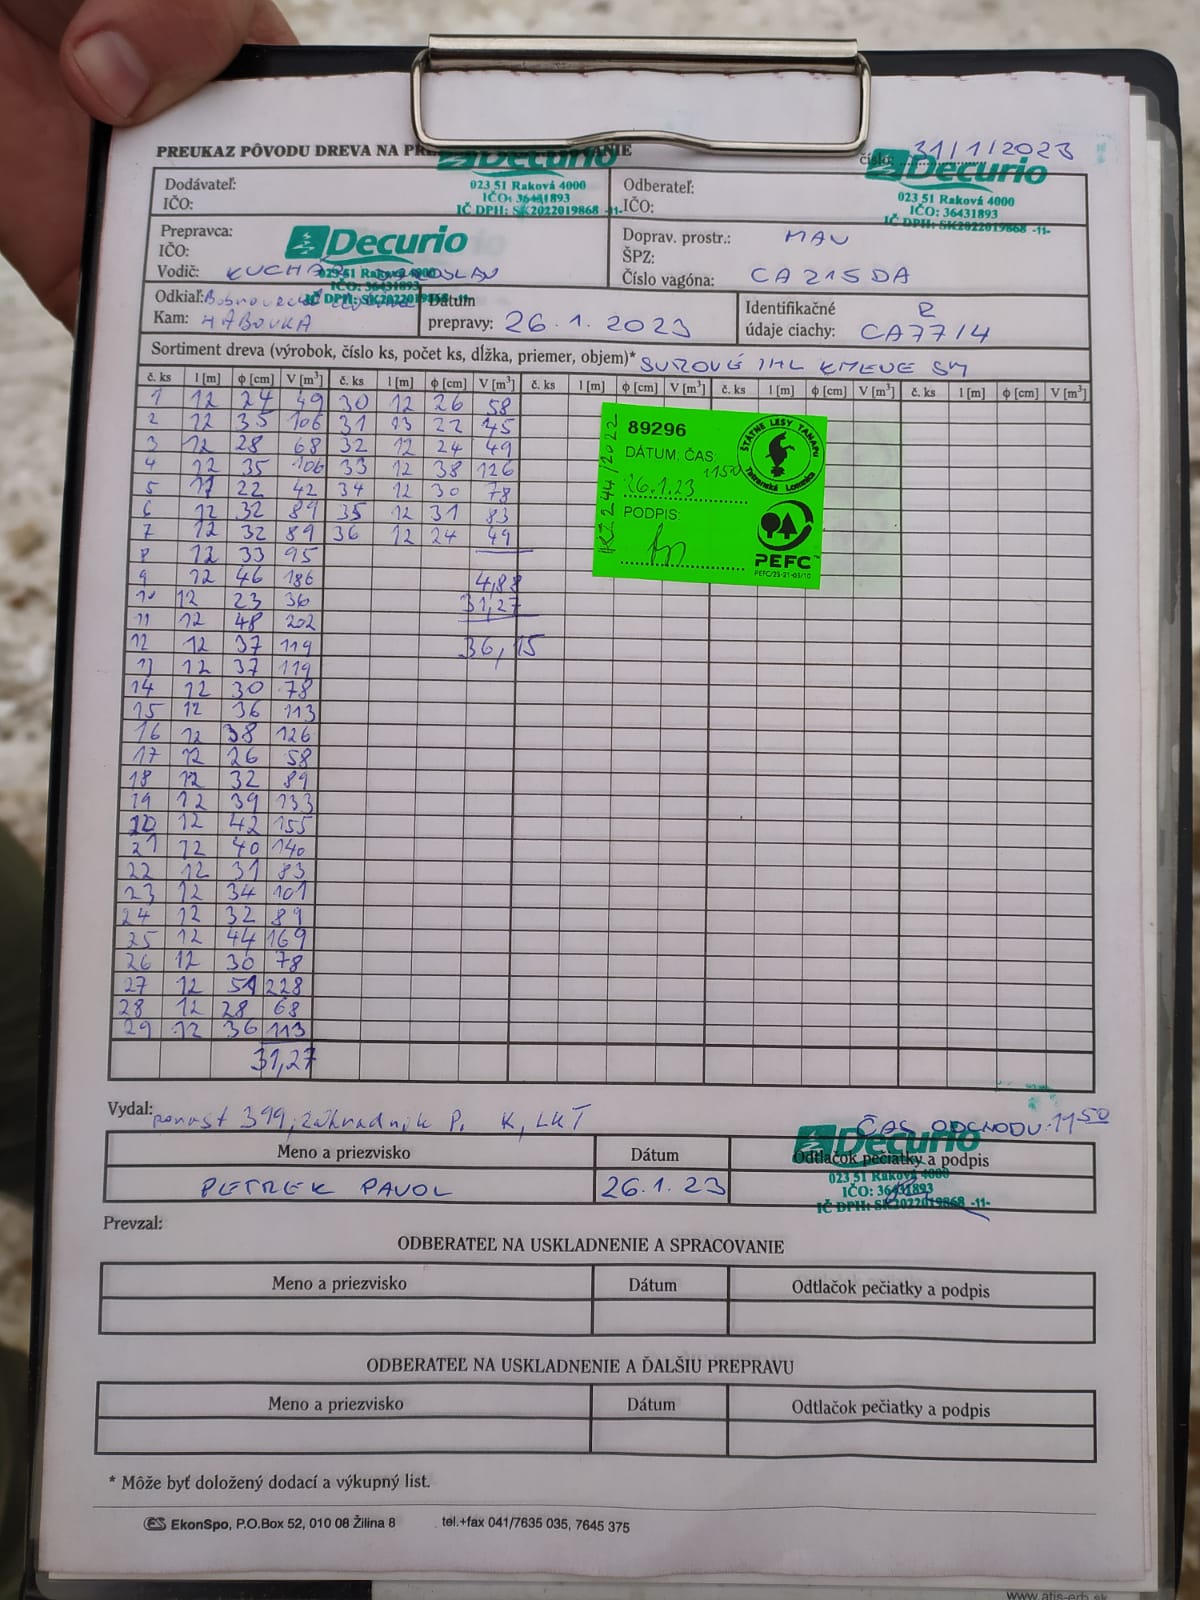 PREUKAZ PÔVODU DREVA NA
číslo: 31/1/2023
Decurio
023 51 Raková 4000
IČO: 36431893
IČ DPH: SK2022019868 -11-
Decurio
023 51 Raková 4000
IČO: 36431893
IČ DPH: SK2022019868 -11-
Dodávateľ:
IČO:
Odberateľ:
IČO:
Prepravca:
IČO:
Vodič:
Decurio
023 51 Raková 4000
IČO: 36431893
IČ DPH: SK2022019868 -11-
Doprav. prostr.: MAN
ŠPZ:
Číslo vagóna: CA215DA
Odkiaľ:
Kam: HABOVKA
Dátum
prepravy: 26.1.2023
Identifikačné R
údaje ciachy: CA7714
Sortiment dreva (výrobok, číslo ks, počet ks, dĺžka, priemer, objem)* SUROVÉ IHL KMENE SM
č. ks l [m] φ [cm] V [m³] č. ks l [m] φ [cm] V [m³] č. ks l [m] φ [cm] V [m³] č. ks l [m] φ [cm] V [m³] č. ks l [m] φ [cm] V [m³]
1 12 24 49 30 12 26 58
2 12 35 106 31 13 22 45
3 12 28 68 32 12 24 49
4 12 35 106 33 12 38 126
5 11 22 42 34 12 30 78
6 12 32 89 35 12 31 83
7 12 32 89 36 12 24 49
8 12 33 95
9 12 46 186 4,88
10 12 23 36 31,27
11 12 48 202
12 12 37 119 36,15
13 12 37 119
14 12 30 78
15 12 36 113
16 12 38 126
17 12 26 58
18 12 32 89
19 12 39 133
20 12 42 155
21 12 40 140
22 12 31 83
23 12 34 101
24 12 32 89
25 12 44 169
26 12 30 78
27 12 51 228
28 12 28 68
29 12 36 113
31,27
KZ 244/2022
89296
DÁTUM, ČAS:
26.1.23 1150
PODPIS:
ŠTÁTNE LESY TANAPU
Tatranská Lomnica
PEFC™
PEFC/23-21-03/10
Vydal: porast 399, Záhradník P. K, LKT
ČAS ODCHODU 11 50
Decurio
023 51 Raková 4000
IČO: 36431893
IČ DPH: SK2022019868 -11-
Meno a priezvisko Dátum Odtlačok pečiatky a podpis
PETREK PAVOL 26.1.23
Prevzal:
ODBERATEĽ NA USKLADNENIE A SPRACOVANIE
Meno a priezvisko Dátum Odtlačok pečiatky a podpis
ODBERATEĽ NA USKLADNENIE A ĎALŠIU PREPRAVU
Meno a priezvisko Dátum Odtlačok pečiatky a podpis
* Môže byť doložený dodací a výkupný list.
EkonSpo, P.O.Box 52, 010 08 Žilina 8 tel.+fax 041/7635 035, 7645 375
www.atis-erb.sk